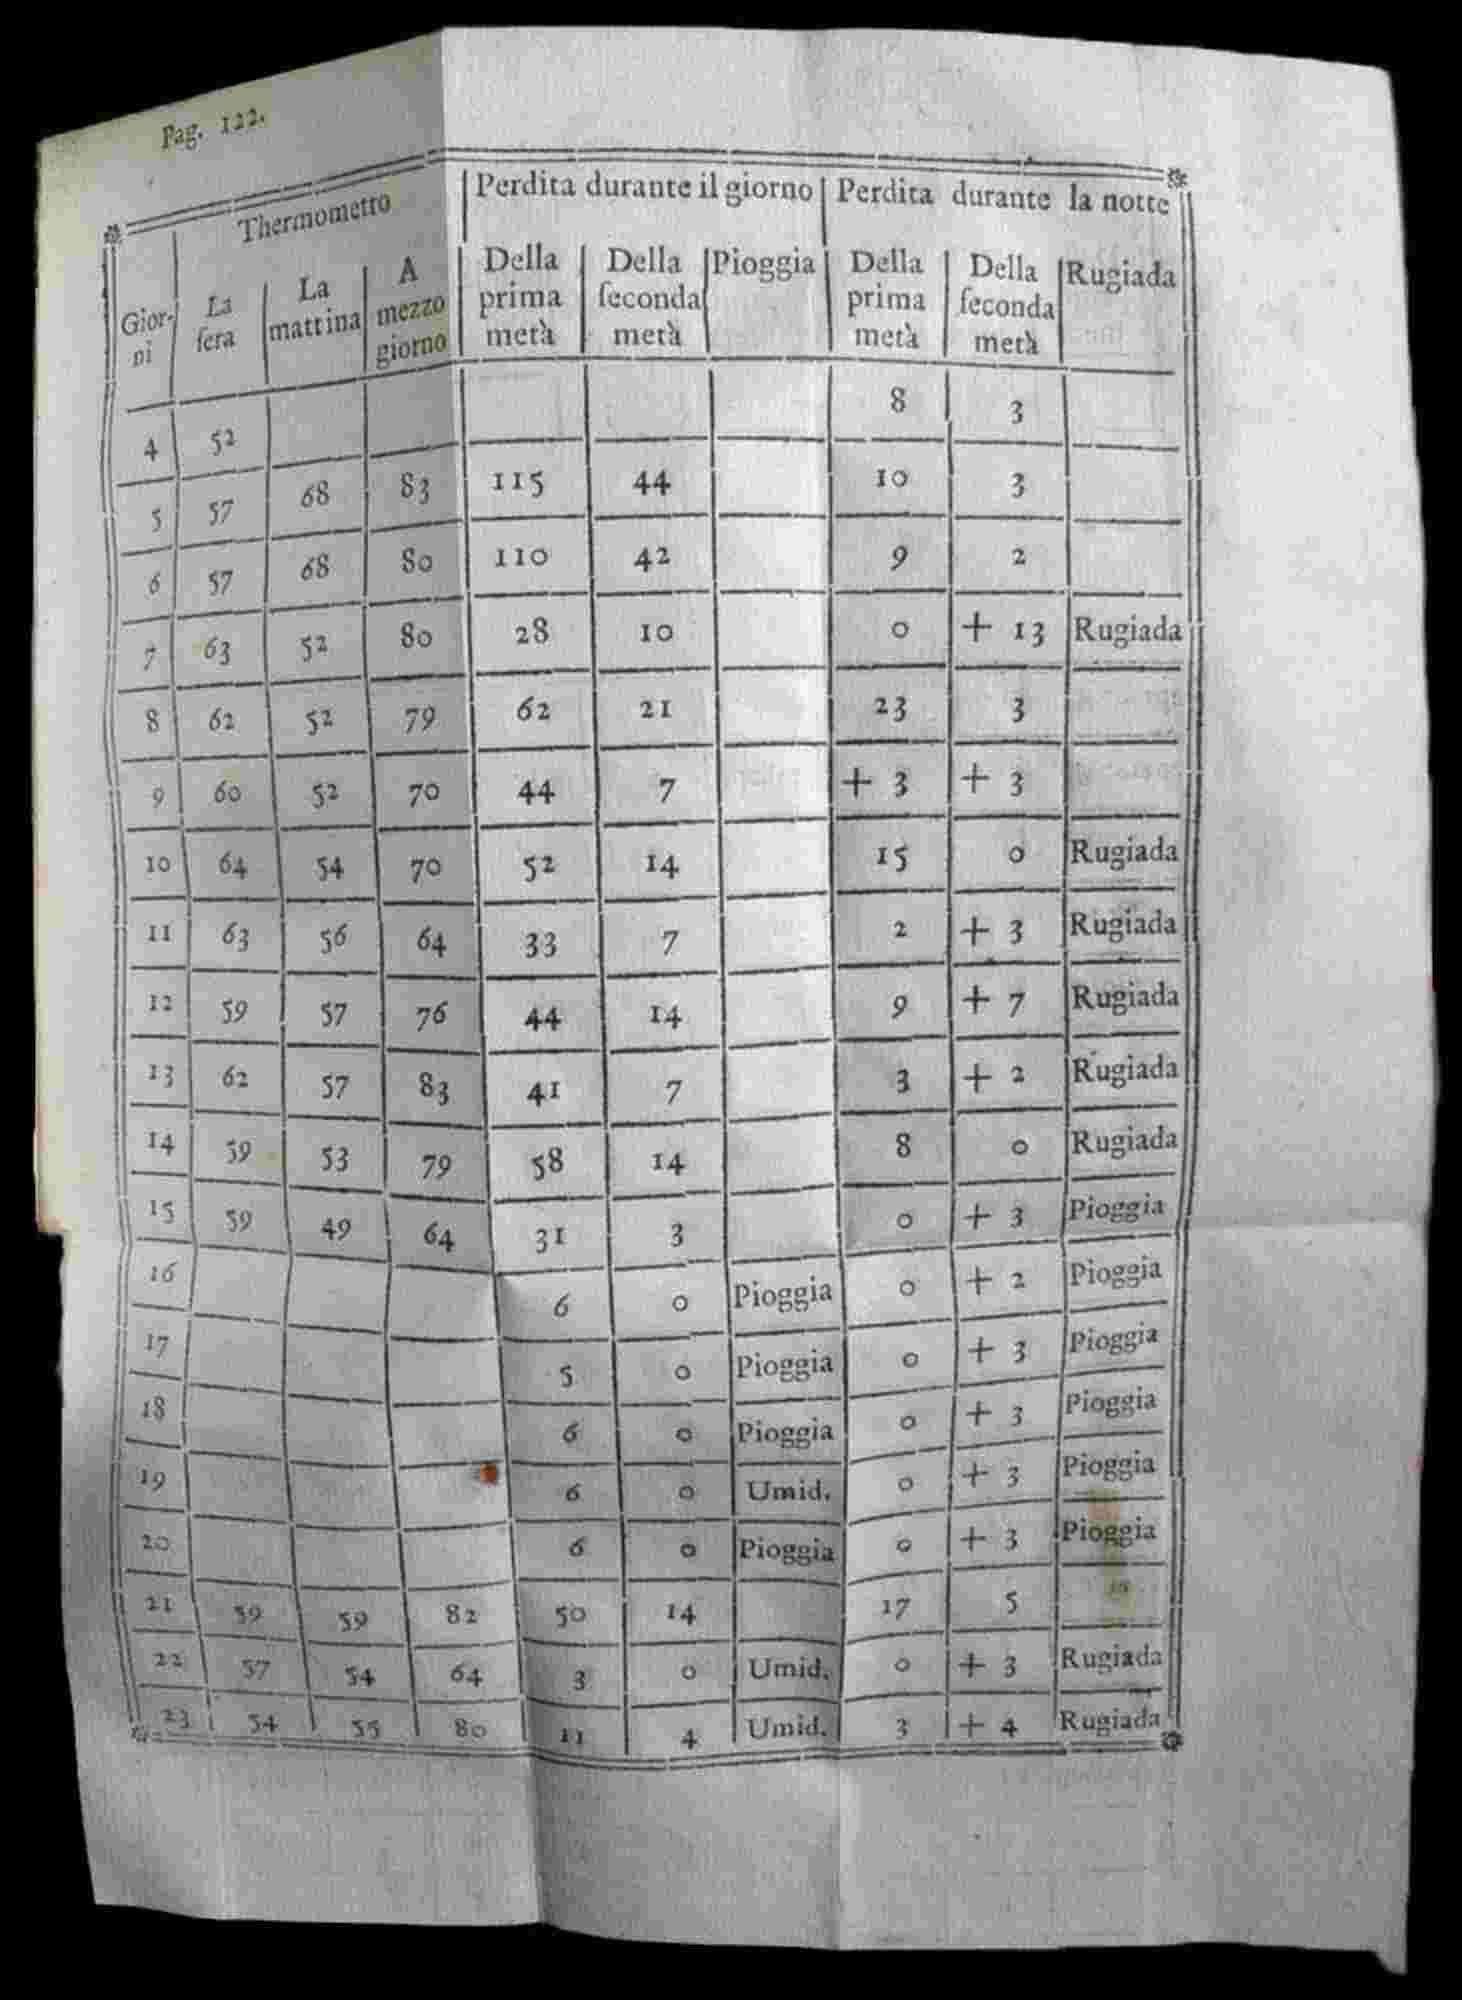 Pag. 122.
Thermometro Perdita durante il giorno Perdita durante la notte
Gior-
ni La
sera La
mattina A
mezzo
giorno Della
prima
metà Della
ſeconda
metà Pioggia Della
prima
metà Della
ſeconda
metà Rugiada
4 52 8 3
5 57 68 83 115 44 10 3
6 57 68 80 110 42 9 2
7 63 52 80 28 10 0 + 13 Rugiada
8 62 52 79 62 21 23 3
9 60 52 70 44 7 + 3 + 3
10 64 54 70 52 14 15 0 Rugiada
11 63 56 64 33 7 2 + 3 Rugiada
12 59 57 76 44 14 9 + 7 Rugiada
13 62 57 83 41 7 3 + 2 Rugiada
14 59 53 79 58 14 8 0 Rugiada
15 59 49 64 31 3 0 + 3 Pioggia
16 6 0 Pioggia 0 + 2 Pioggia
17 5 0 Pioggia 0 + 3 Pioggia
18 6 0 Pioggia 0 + 3 Pioggia
19 6 0 Umid. 0 + 3 Pioggia
20 6 0 Pioggia 0 + 3 Pioggia
21 59 59 82 50 14 17 5
22 57 54 64 3 0 Umid. 0 + 3 Rugiada
23 54 55 80 11 4 Umid. 3 + 4 Rugiada